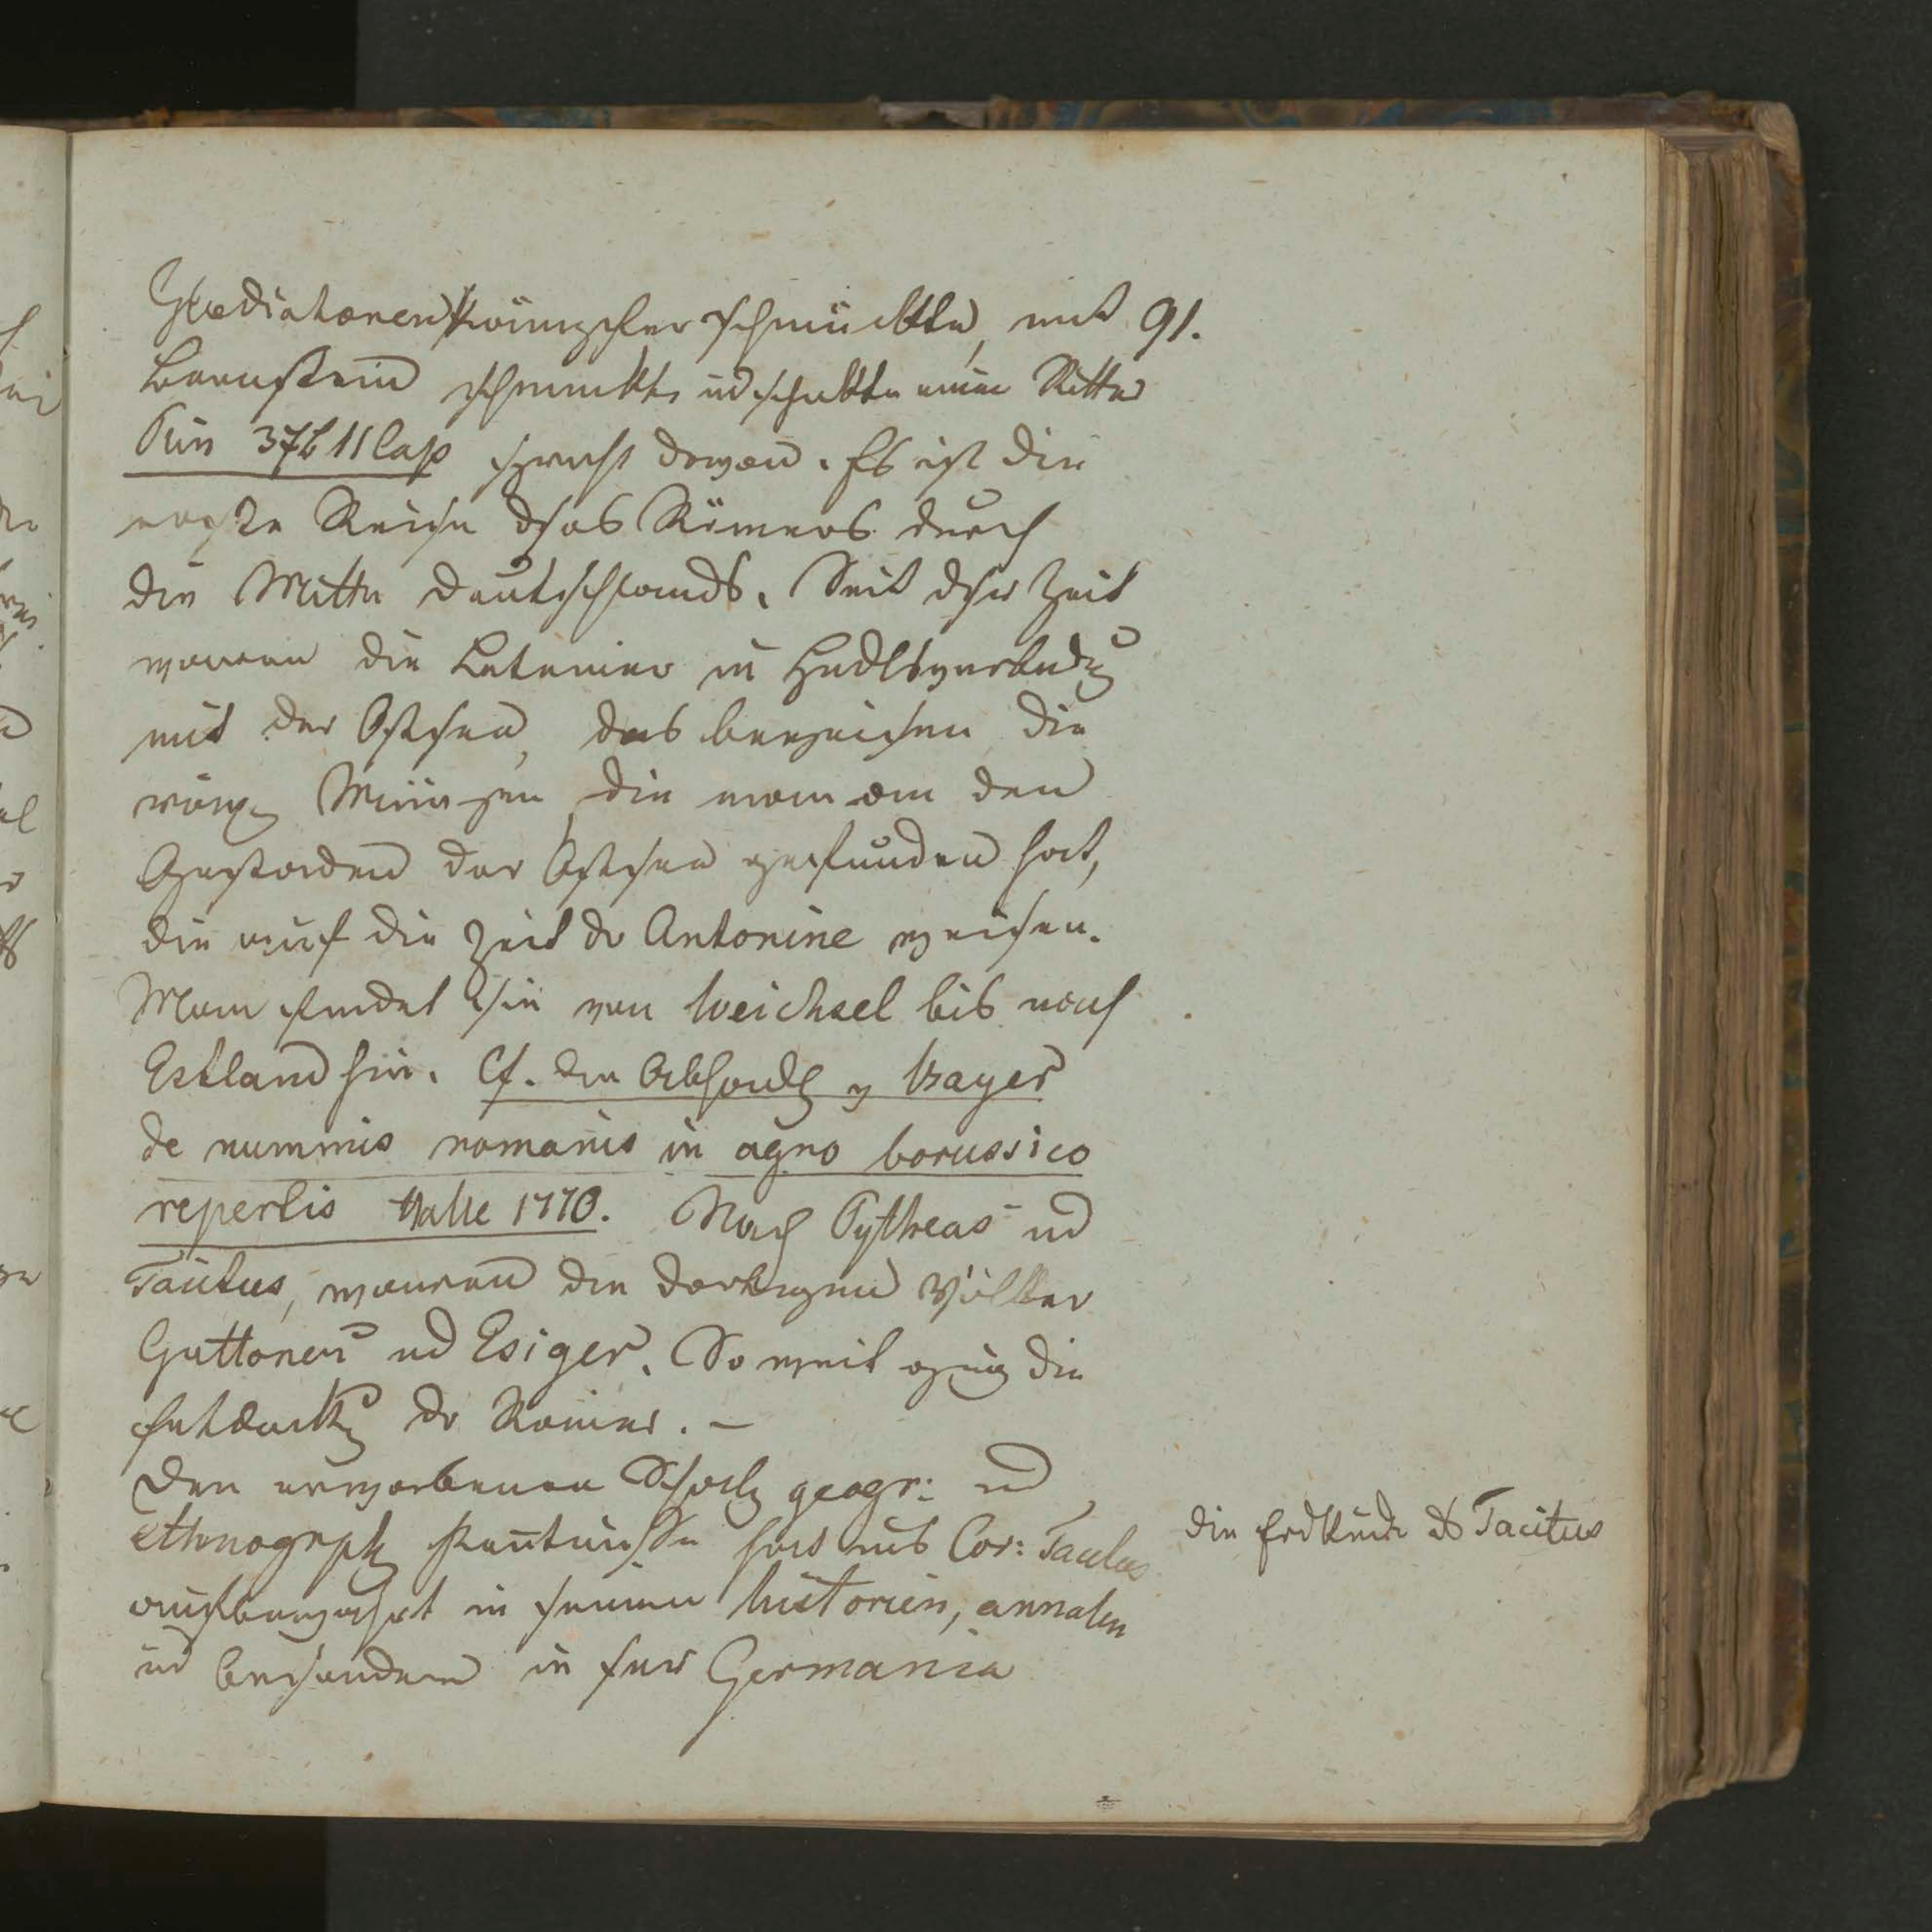 Gladiatoren kämpfer schmückte, mit 91.
Bernstein schmückte u schickte einen Ritter
Plin 37 b 11 Cap spricht davon. Es ist die
erste Reise dses Römers durch
die Mitte Deutschlands. Seit dser Zeit
waren die Lateiner in Hndlsverbndg
mit der Ostsee, das bezeichnen die
röm. Münzen, die man an den
Gestaden der Ostsee gefunden hat,
die auf die Zeit dr Antonine weisen.
Man findet sie von Weichsel bis nach
Estland hin. Cf. die Abhandlg v Bayer
de nummis romanis in agro borussico
repertis Halle 1770. Nach Pytheas ud
Tacitus, waren die dortigen Völker
Guttonen ud Esiger. So weit ging die
Entdeckg dr Römer. –
Den erworbenen Schatz geogr: ud
ethnogrph Kentnisse hat uns Cor: Tacitus
aufbewahrt in seinen historien, annalen
ud besonders in sner Germania
die Erdkunde ds Tacitus